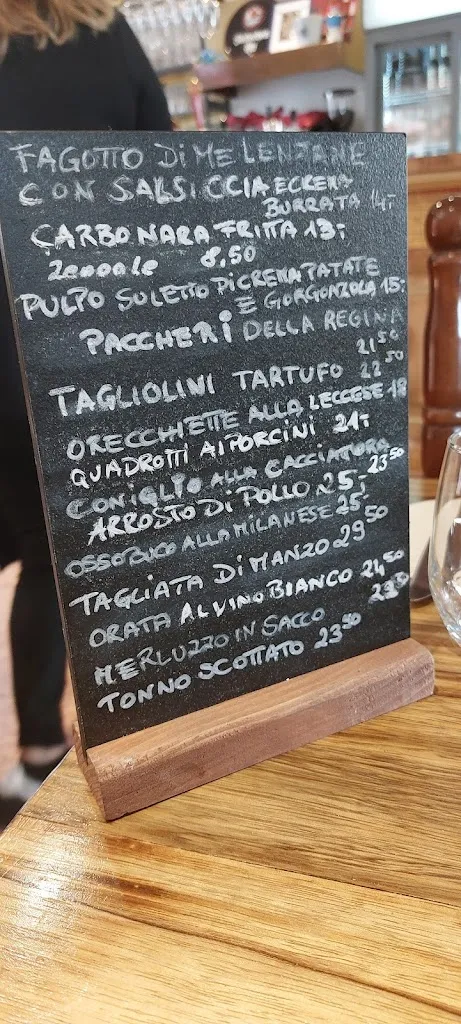 FAGOTTO DI MELENZANE
CON SALSICCIA E CREMA
BURRATA 14.-
CARBONARA FRITTA 13.-
Zeppole 8,50
PULPO SU LETTO DI CREMA PATATE
E GORGONZOLA 15.-
PACCHERI DELLA REGINA
21 50
TAGLIOLINI TARTUFO 22 50
ORECCHIETTE ALLA LECCESE 18
QUADROTTI AI PORCINI 21.-
CONIGLIO ALLA CACCIATORA
23 50
ARROSTO DI POLLO 25.-
OSSOBUCO ALLA MILANESE 25.-
TAGLIATA DI MANZO 29 50
ORATA AL VINO BIANCO 24 50
MERLUZZO IN SACCO
TONNO SCOTTATO 23 50